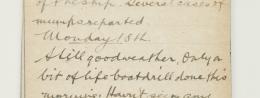 of the ship. Several cases of
mumps reported.
Monday 15th.
Still good weather, Only a
bit of life boat drill done this
morning. Haven't seen any